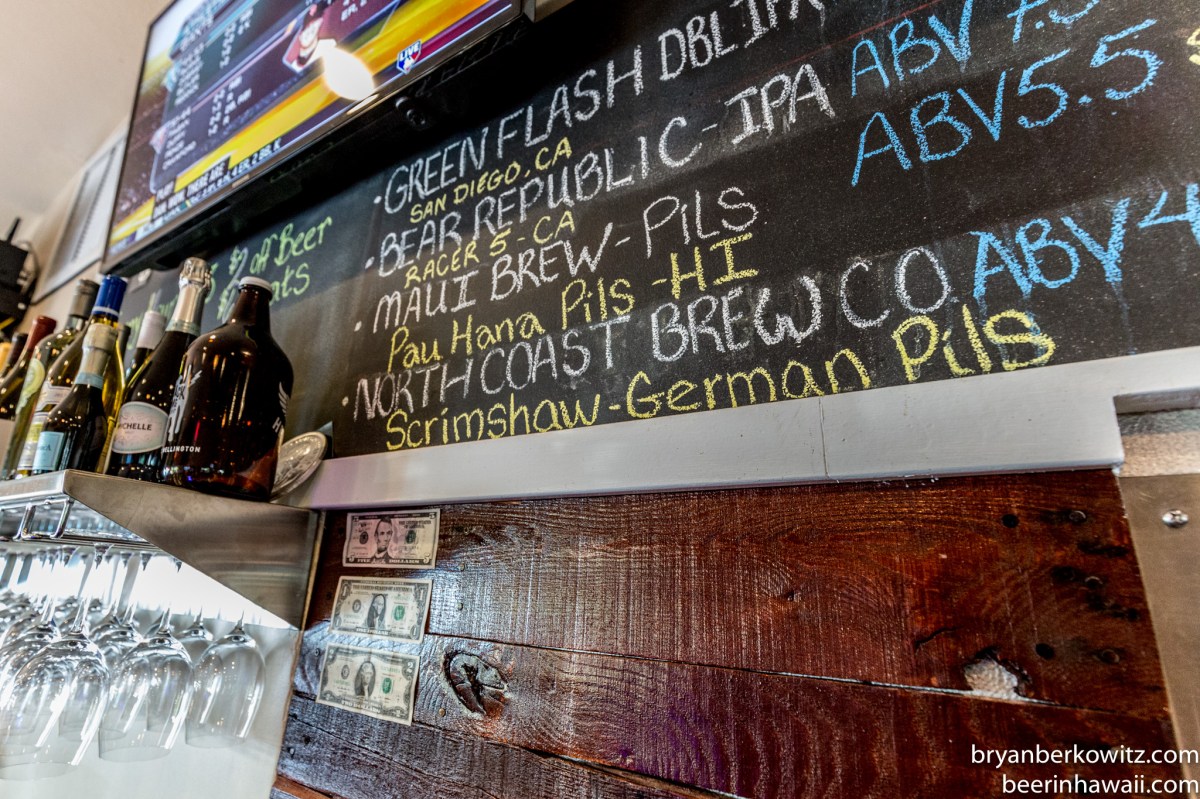 LIVE
$2 off Beer
GREEN FLASH DBL IPA ABV 7.5
SAN DIEGO, CA
BEAR REPUBLIC - IPA ABV 5.5
RACER 5 - CA
MAUI BREW - Pils
Pau Hana Pils - HI
NORTH COAST BREW CO ABV 4
Scrimshaw - German Pils
MICHELLE
bryanberkowitz.com
beerinhawaii.com